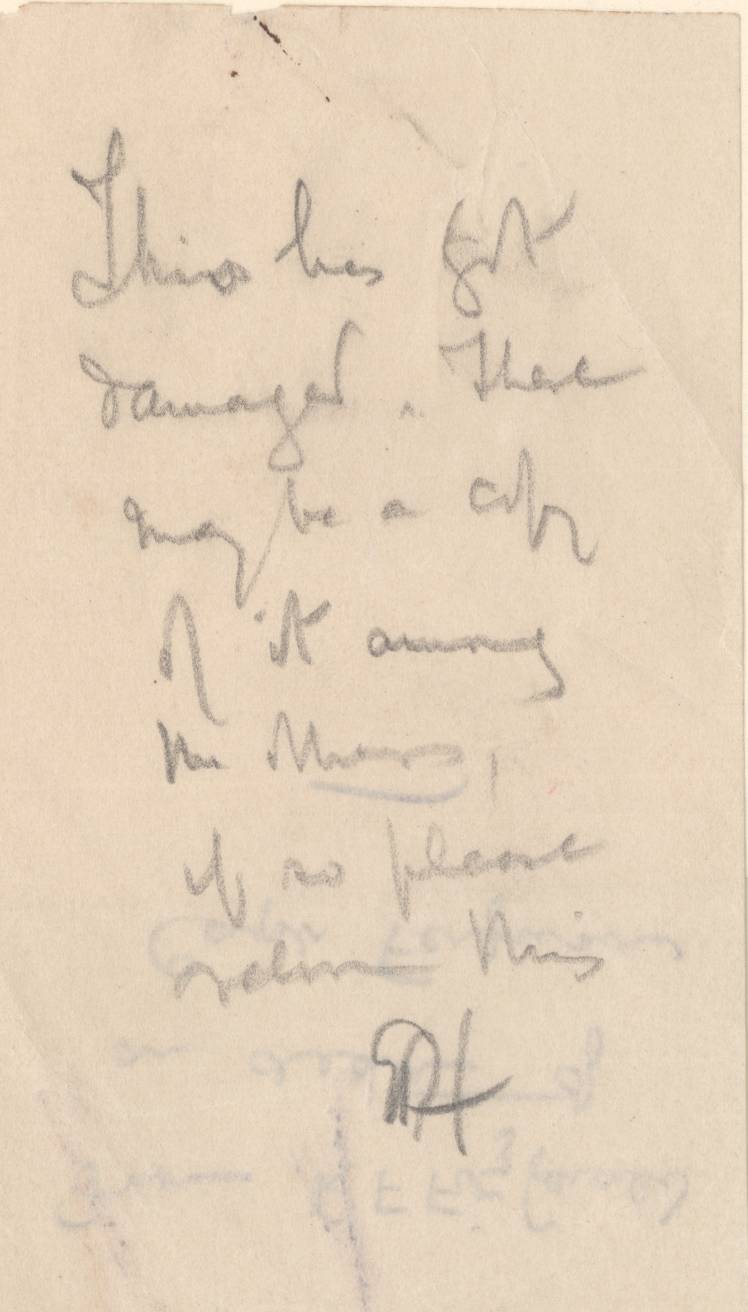 This has got
damaged. There
may be a copy
of it among
the
if so please
return this